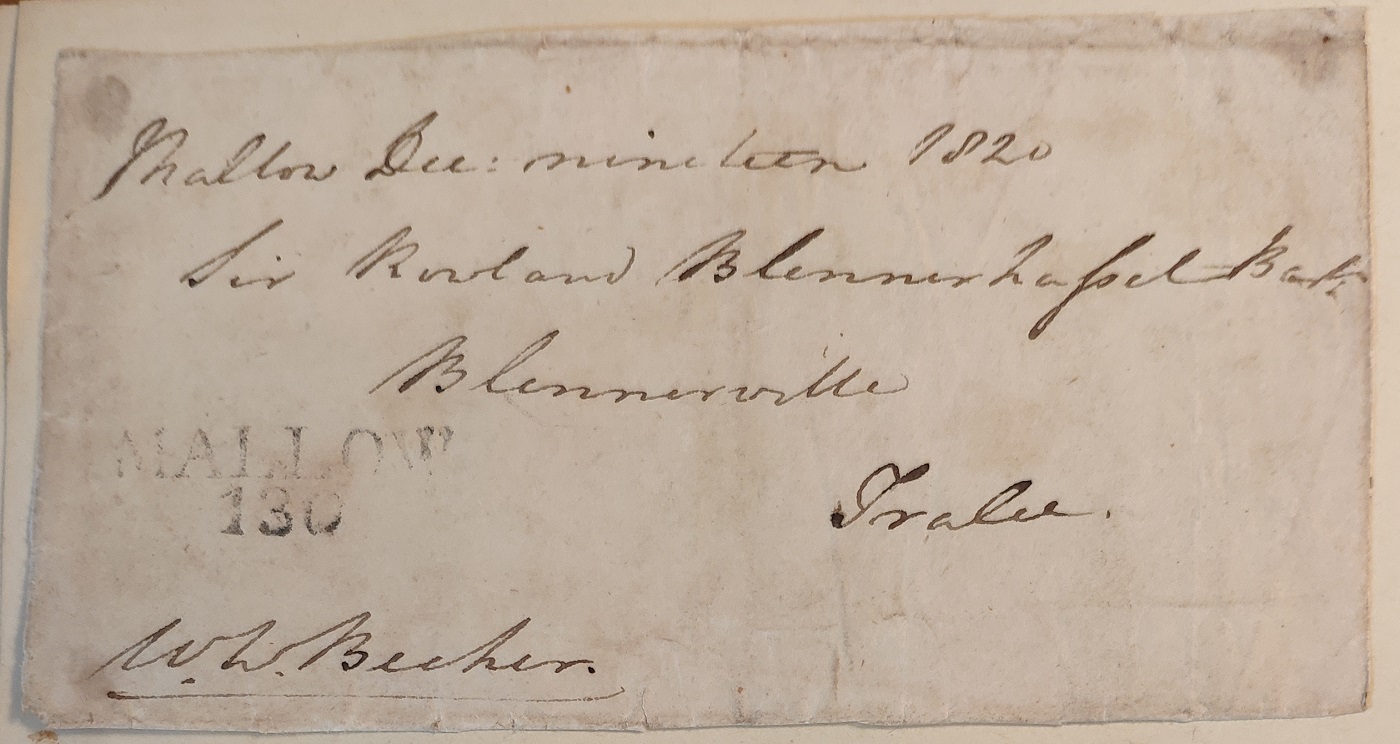 Mallow Dec: nineteen 1820
Sir Rowland Blennerhasset Bart.
Blennerville
MALLOW
130
Tralee.
W. W. Becher.